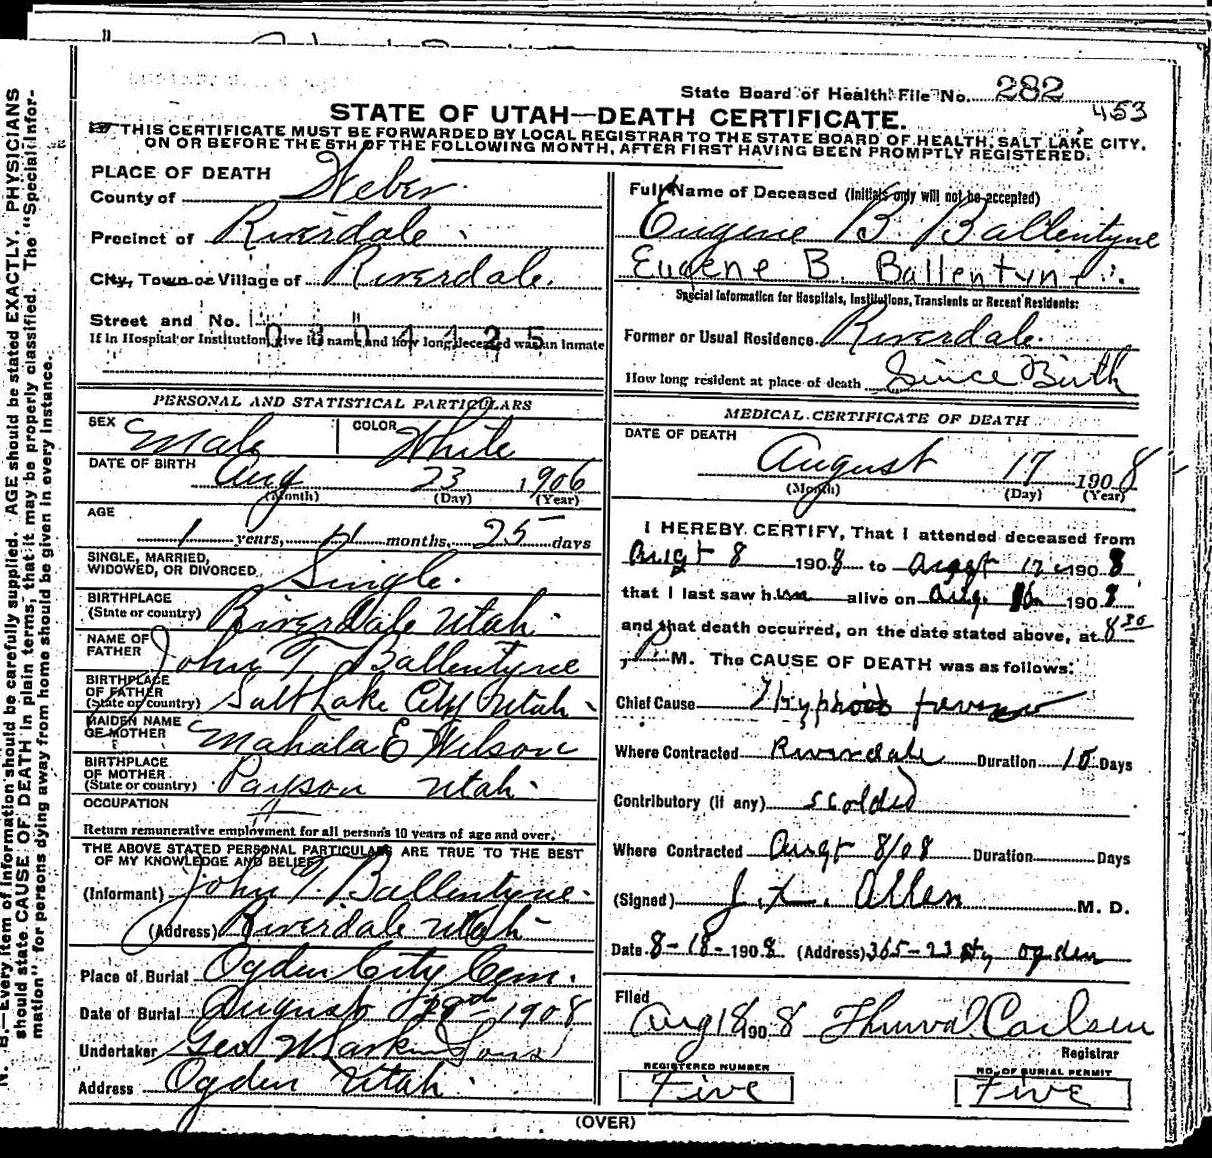 State Board of Health File No. 282
453
STATE OF UTAH—DEATH CERTIFICATE.
THIS CERTIFICATE MUST BE FORWARDED BY LOCAL REGISTRAR TO THE STATE BOARD OF HEALTH, SALT LAKE CITY,
ON OR BEFORE THE 5TH OF THE FOLLOWING MONTH, AFTER FIRST HAVING BEEN PROMPTLY REGISTERED.
N. B.—Every item of information should be carefully supplied. AGE should be stated EXACTLY. PHYSICIANS
should state CAUSE OF DEATH in plain terms, that it may be properly classified. The "Special Infor-
mation" for persons dying away from home should be given in every instance.
PLACE OF DEATH
County of Weber
Precinct of Riverdale
City, Town or Village of Riverdale.
Street and No.
0 3 0 4 1 1 2 5
If in Hospital or Institution, give its name and how long deceased was an inmate
PERSONAL AND STATISTICAL PARTICULARS
SEX Male COLOR White
DATE OF BIRTH Aug 23 1906
(Month) (Day) (Year)
AGE
1 years, 11 months, 25 days
SINGLE, MARRIED,
WIDOWED, OR DIVORCED Single.
BIRTHPLACE
(State or country) Riverdale Utah
NAME OF
FATHER John T Ballentyne
BIRTHPLACE
OF FATHER
(State or country) Salt Lake City Utah
MAIDEN NAME
OF MOTHER Mahala E Wilson
BIRTHPLACE
OF MOTHER
(State or country) Payson Utah
OCCUPATION
Return remunerative employment for all persons 10 years of age and over.
THE ABOVE STATED PERSONAL PARTICULARS ARE TRUE TO THE BEST
OF MY KNOWLEDGE AND BELIEF
(Informant) John T. Ballentyne
(Address) Riverdale Utah
Place of Burial Ogden City Cem.
Date of Burial August 1908
Undertaker Geo W Larkin Sons
Address Ogden Utah
Full Name of Deceased (Initials only will not be accepted)
Eugene B. Ballentyne
Eugene B. Ballentyne
Special Information for Hospitals, Institutions, Transients or Recent Residents:
Former or Usual Residence Riverdale
How long resident at place of death Since Birth
MEDICAL CERTIFICATE OF DEATH
DATE OF DEATH
August 17 1908
(Month) (Day) (Year)
I HEREBY CERTIFY, That I attended deceased from
Augt 8 1908 to Augt 17 1908
that I last saw him alive on Aug. 16 1908
and that death occurred, on the date stated above, at 8 30
P. M. The CAUSE OF DEATH was as follows:
Chief Cause Thyphoid fever
Where Contracted Riverdale Duration 10 Days
Contributory (if any) scolded
Where Contracted Augt 8/08 Duration Days
(Signed) Allen M. D.
Date 8-18-1908 (Address) 365-23 St, Ogden
Filed
Aug 18 1908 Thurval Carlsen
Registrar
REGISTERED NUMBER
Five
NO. OF BURIAL PERMIT
Five
(OVER)